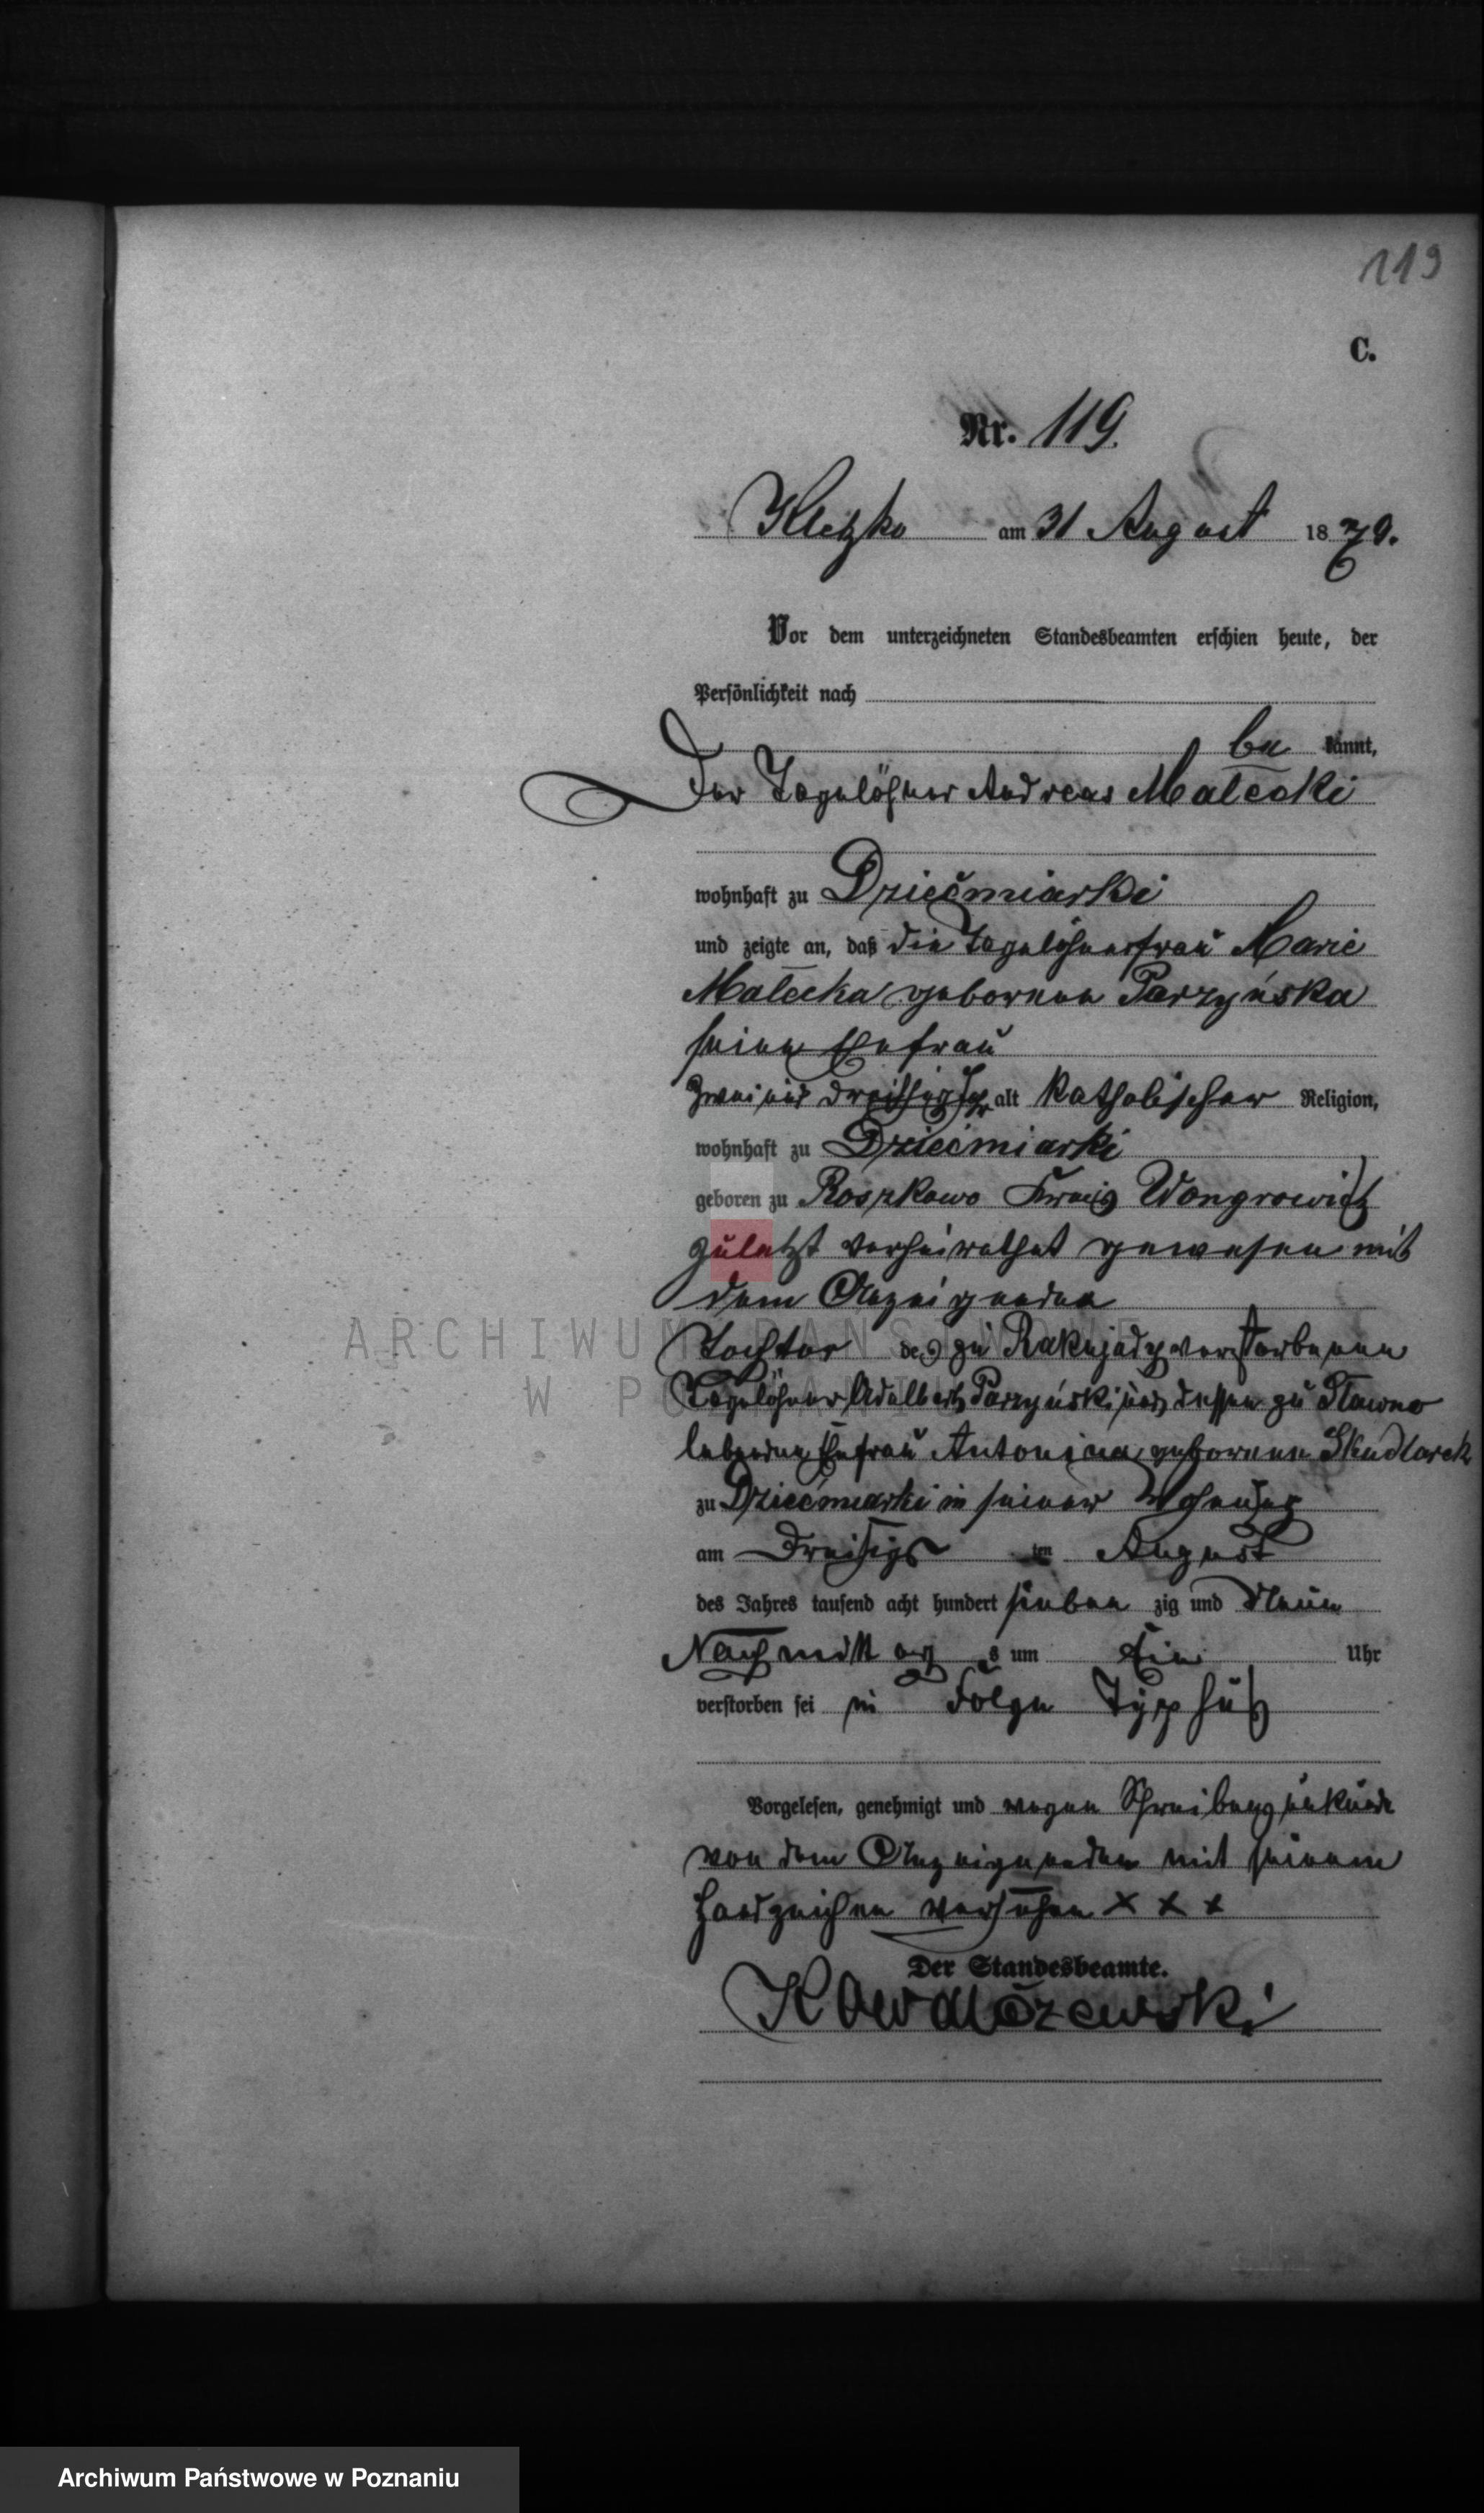 119
C.
Nr. 119.
Kletzko am 31 August 1879.
Vor dem unterzeichneten Standesbeamten erschien heute, der
Persönlichkeit nach
be kannt,
Der Tagelöhner Andreas Małecki
wohnhaft zu Dziećmiarki
und zeigte an, daß die Tagelöhnerfrau Marie
Małecka geborene Parzyńska
seine Ehefrau
zwei und dreißig Jahr alt katholischer Religion,
wohnhaft zu Dziećmiarki
geboren zu Roszkowo Kreis Wongrowitz
zuletzt verheirathet gewesen mit
dem Anzeigenden
Tochter des zu Rakujady verstorbenen
Tagelöhner Adalbert Parzyński und dessen zu Sławno
lebenden Ehefrau Antonina geborenen Skudlarek
zu Dziećmiarki in seiner
am Dreißigs ten August
des Jahres tausend acht hundert sieben zig und Neun
Nachmittags um Ein Uhr
verstorben sei in Folge Typhus
Vorgelesen, genehmigt und wegen Schreibensunkunde
von dem Anzeigenden mit seinem
Handzeichen versehen x x x
Der Standesbeamte.
ARCHIWUM PAŃSTWOWE
W POZNANIU
Archiwum Państwowe w Poznaniu